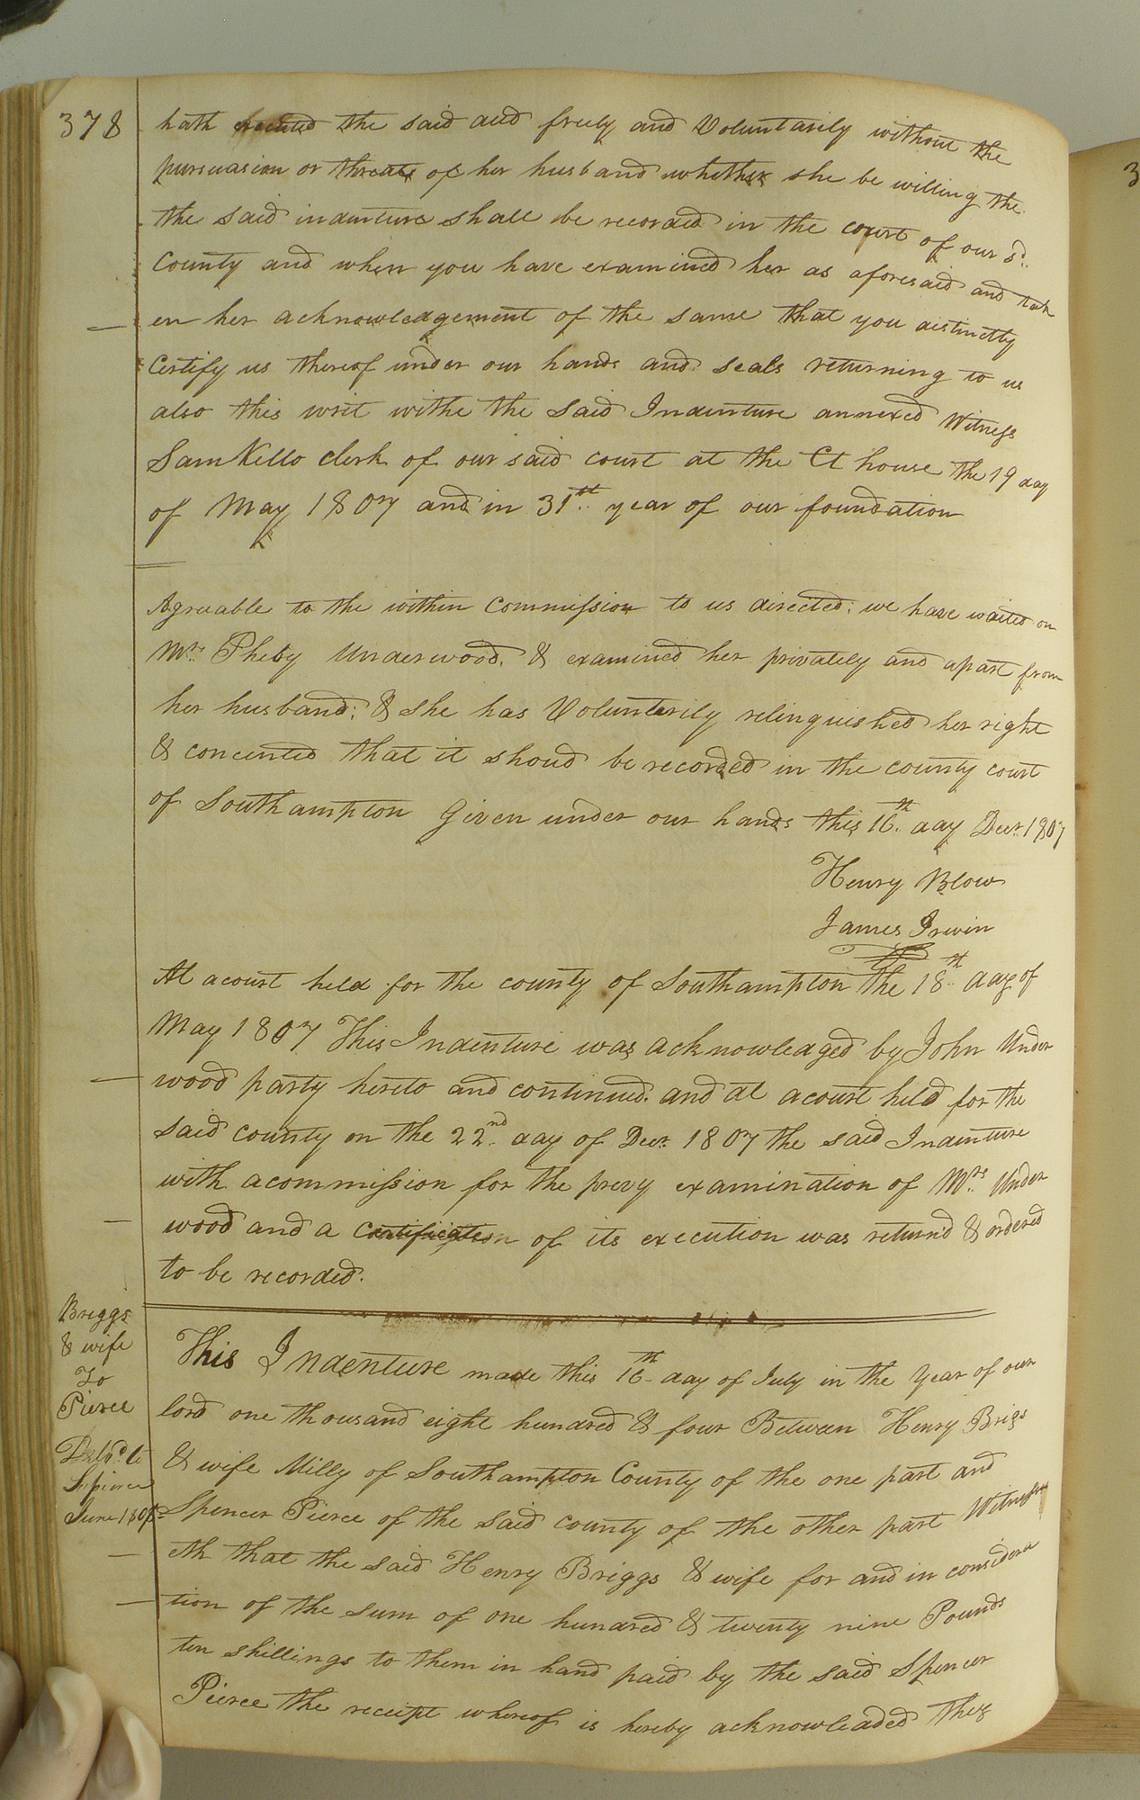 378
hath executed the said and freely and Voluntarily without the
pursuasion or threats of her husband whether she be willing the
the said indenture shall be recorded in the court of our sd.
County and when you have examined her as aforesaid and tak
en her acknowledgement of the same that you distinctly
Certify us thereof under our hands and seals returning to us
also this writ withe the said Indenture annexed Witness
Sam Kello clerk of our said court at the Ct house the 19 day
of May 1807 and in 31st year of our foundation
Agreeable to the within Commission to us directed: we have waited on
Mrs. Pheby Underwood. & examined her privately and apart from
her husband: & she has Voluntarily relinquished her right
& concented that it shoud be recorded in the county court
of Southampton Given under our hands this 16.th day Decr. 1807
Henry Blow
James Irwin
At acourt held for the county of Southampton the 18th day of
May 1807 This Indenture was acknowledged by John Under
wood party hereto and continued. and at acourt held for the
said county on the 22nd day of Decr. 1807 the said Indenture
with acommission for the prevy examination of Mrs. Under
wood and a certificate of its execution was returnd & ordered
to be recorded.
Briggs
& wife
To
Pierce
Delvd to
S pierce
June 180
This Indenture made this 16th day of July in the Year of our
lord one thousand eight hundred & four Between Henry Brigs
& wife Milly of Southampton County of the one part and
Spencer Pierce of the said county of the other part Witness
eth that the said Henry Briggs & wife for and in considera
tion of the sum of one hundred & twenty nine Pounds
ten shillings to them in hand paid by the said Spencer
Pierce the receipt whereof is hereby acknowleaded they